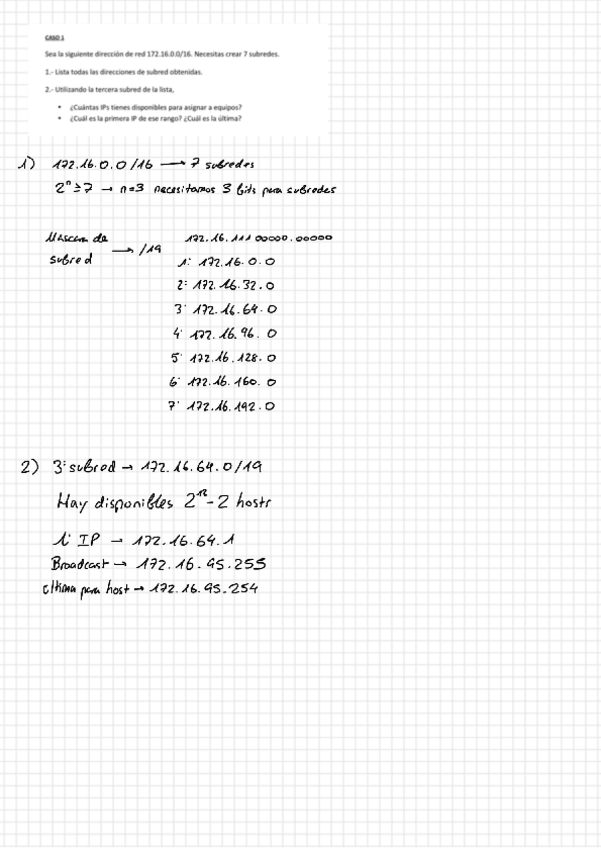 CASO 1
Sea la siguiente dirección de red 172.16.0.0/16. Necesitas crear 7 subredes.
1.- Lista todas las direcciones de subred obtenidas.
2.- Utilizando la tercera subred de la lista,
• ¿Cuántas IPs tienes disponibles para asignar a equipos?
• ¿Cuál es la primera IP de ese rango? ¿Cuál es la última?
1) 172.16.0.0/16 → 7 subredes
2ⁿ ≥ 7 → n=3 necesitamos 3 bits para subredes
Máscara de subred → /19 172.16.11100000.00000
1: 172.16.0.0
2: 172.16.32.0
3: 172.16.64.0
4: 172.16.96.0
5: 172.16.128.0
6: 172.16.160.0
7: 172.16.192.0
2) 3: subred → 172.16.64.0/19
Hay disponibles 2¹²-2 hosts
1: IP → 172.16.64.1
Broadcast → 172.16.95.255
última para host → 172.16.95.254